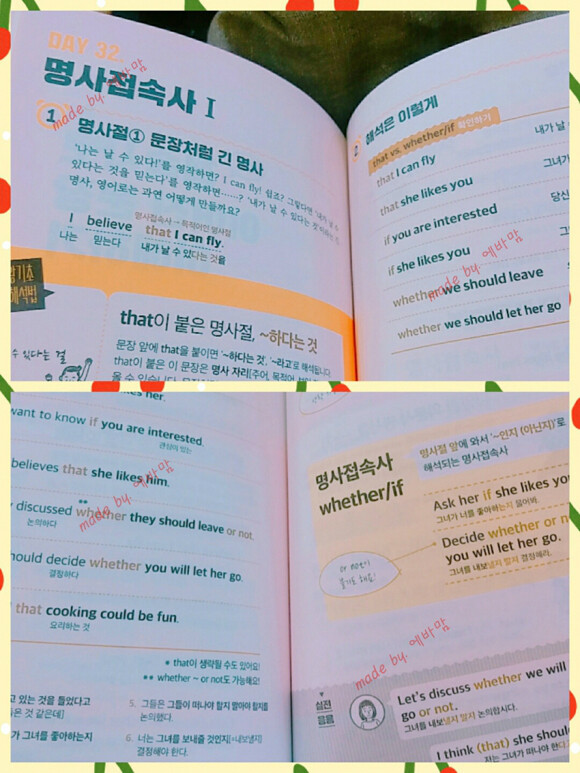 DAY 32.
명사접속사 I
made by. 에바맘
1 명사절① 문장처럼 긴 명사
'나는 날 수 있다!'를 영작하면? I can fly! 쉽죠? 그렇다면 '내가 날 수
있다는 것을 믿는다'를 영작하면……? '내가 날 수 있다는 것'이라는 긴
명사, 영어로는 과연 어떻게 만들까요?
명사접속사 → 목적어인 명사절
I believe that I can fly.
나는 믿는다 내가 날 수 있다는 것을
왕기초
해석법
that이 붙은 명사절, ~하다는 것
수 있다는 걸
문장 앞에 that을 붙이면 '~하다는 것', '~라고'로 해석됩니다.
that이 붙은 이 문장은 명사 자리[주어, 목적어,
2 해석은 이렇게
that vs. whether/if 확인하기
that I can fly
내가 날
that she likes you
그녀가
if you are interested
당신
if she likes you
made by. 에바맘
whether we should leave
whether we should let her go
likes her.
want to know if you are interested.
관심이 있는
believes that she likes him.
made by. 에바맘
**
discussed whether they should leave or not.
논의하다
should decide whether you will let her go.
결정하다
that cooking could be fun.
요리하는 것
* that이 생략될 수도 있어요!
** whether ~ or not도 가능해요!
고 있는 것을 들었다고
온 것 같은데]
가 그녀를 좋아하는지
5. 그들은 그들이 떠나야 할지 말아야 할지를
논의했다.
6. 너는 그녀를 보내줄 것인지[=내보낼지]
결정해야 한다.
명사접속사
whether/if
명사절 앞에 와서 '~인지 (아닌지)'로
해석되는 명사접속사
Ask her if she likes you
그녀가 너를 좋아하는지 물어봐.
Decide whether or no
you will let her go.
그녀를 내보낼지 말지 결정해라.
or not이
붙기도 해요!
made by. 에바맘
실전
응용
Let's discuss whether we will
go or not.
그녀를 내보낼지 말지 논의합시다.
I think (that) she shou
저는 그녀가 떠나야 한다고